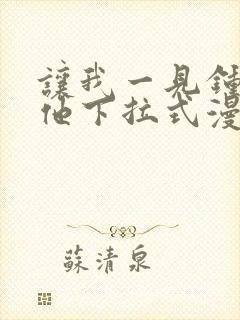 讓我一見鍾
他下拉式漫
蘇清泉